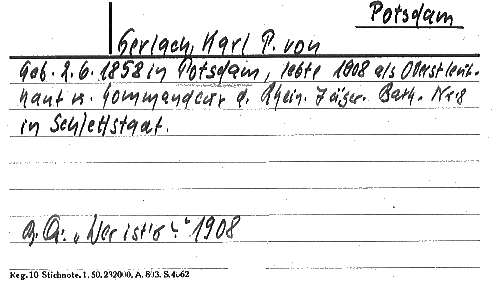 Potsdam
Gerlach, Karl P. von
Geb. 2.6.1858 in Potsdam, lebte 1908 als Oberstleut-
nant u. Commandeur d. Rhein. Jäger. Bath. Nr 8
in Schlettstadt.
a. Q: „Wer ist's?" 1908
Reg. 10 Stichnote. 1. 50. 232000. A. 803. S. 4662